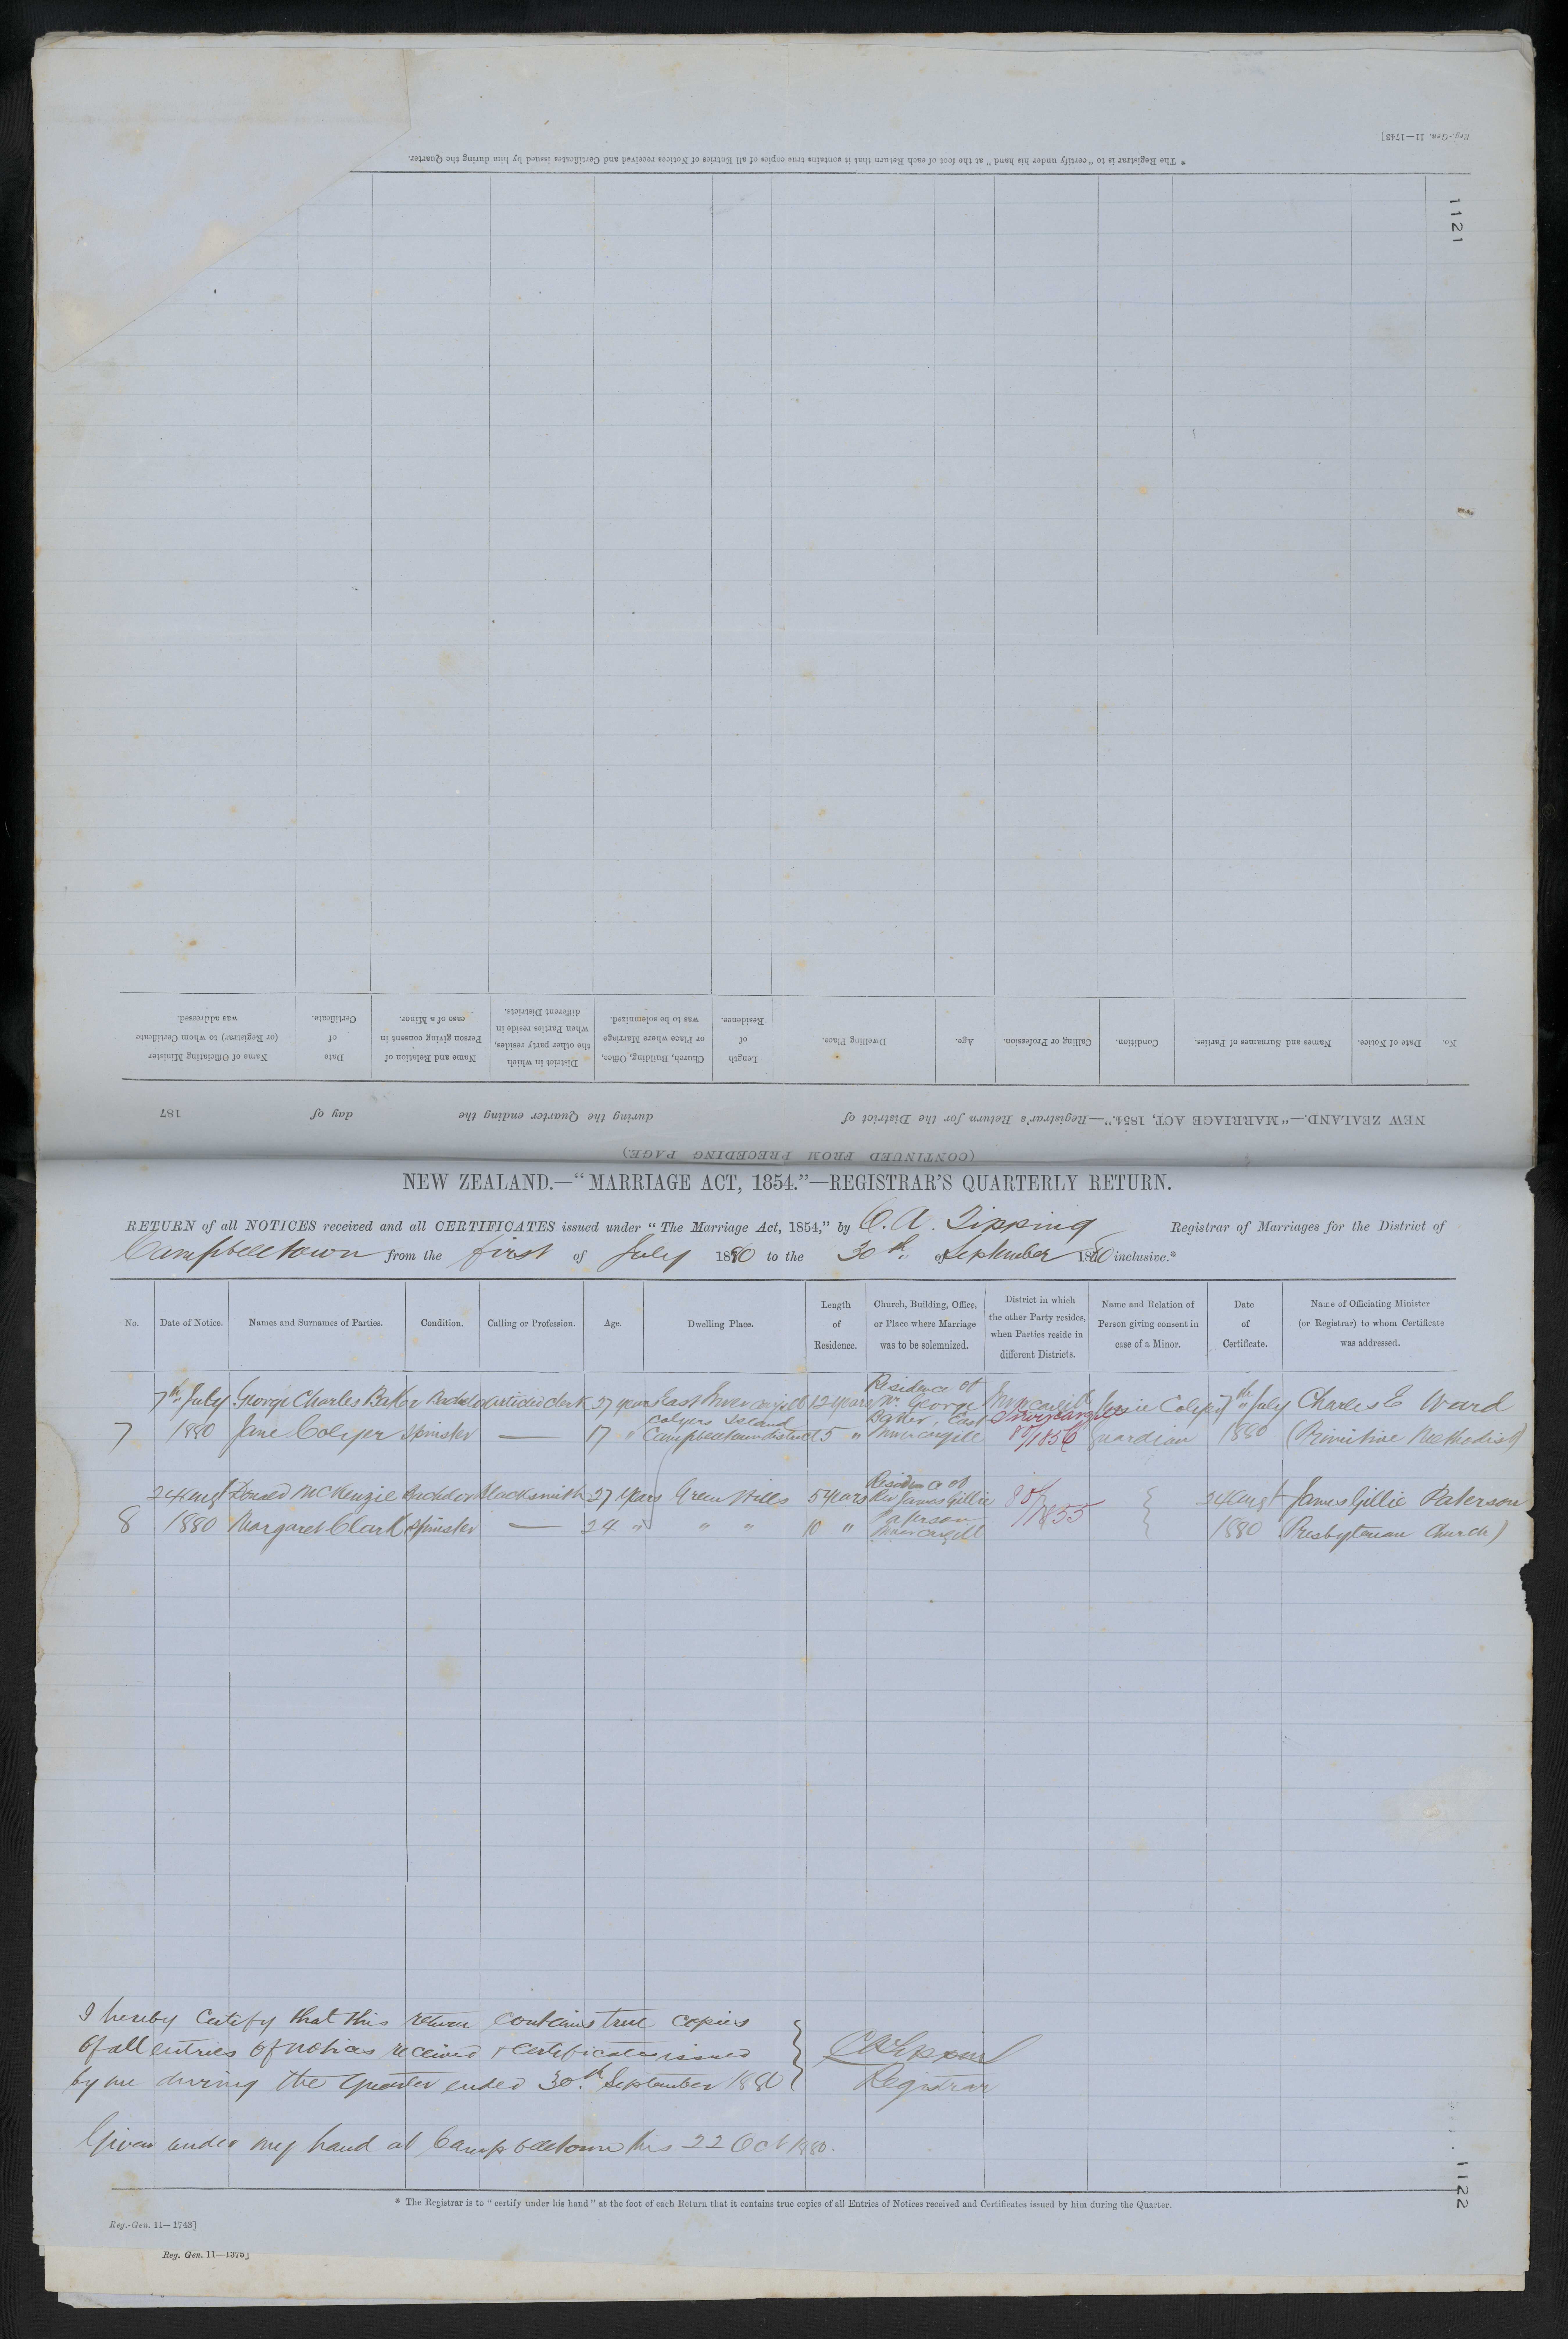 Reg.-Gen. 11—1743]
* The Registrar is to "certify under his hand" at the foot of each Return that it contains true copies of all Entries of Notices received and Certificates issued by him during the Quarter.
1121
No.
Date of Notice.
Names and Surnames of Parties.
Condition.
Calling or Profession.
Age.
Dwelling Place.
Length of Residence.
Church, Building, Office, or Place where Marriage was to be solemnized.
District in which the other party resides, when Parties reside in different Districts.
Name and Relation of Person giving consent in case of a Minor.
Date of Certificate.
Name of Officiating Minister (or Registrar) to whom Certificate was addressed.
NEW ZEALAND.—"MARRIAGE ACT, 1854."—Registrar's Return for the District of during the Quarter ending the day of 187
(CONTINUED FROM PRECEDING PAGE)
NEW ZEALAND.—"MARRIAGE ACT, 1854."—REGISTRAR'S QUARTERLY RETURN.
RETURN of all NOTICES received and all CERTIFICATES issued under "The Marriage Act, 1854," by C. A. Tipping Registrar of Marriages for the District of
Campbelltown from the first of July 1880 to the 30th of September 1880 inclusive.*
No.
Date of Notice.
Names and Surnames of Parties.
Condition.
Calling or Profession.
Age.
Dwelling Place.
Length
of
Residence.
Church, Building, Office,
or Place where Marriage
was to be solemnized.
District in which
the other Party resides,
when Parties reside in
different Districts.
Name and Relation of
Person giving consent in
case of a Minor.
Date
of
Certificate.
Name of Officiating Minister
(or Registrar) to whom Certificate
was addressed.
7
7th July
1880
George Charles Baker
Jane Colyer
Bachelor
Spinster
Articled clerk
—
27 years
17 "
East Invercargill
Colyers Island
Campbelltown district
12 years
5 "
Residence of
Mr. George
Baker, East
Invercargill
Invercargill
Invercargill
80/1856
Jessie Colyer
guardian
7th July
1880
Charles E Ward
(Primitive Methodist)
8
24 Augt
1880
Donald McKenzie
Margaret Clark
Bachelor
Spinster
Blacksmith
—
27 Years
24 "
Green Hills
" "
5 years
10 "
Residence of
Rev James Gillie
Paterson
Invercargill
85/1855
24 Augt
1880
James Gillie Paterson
(Presbyterian Church)
I hereby certify that this return contains true copies
of all entries of notices received & certificates issued
by me during the Quarter ended 30th September 1880
CATipping
Registrar
Given under my hand at Campbelltown this 22 Oct 1880.
1122
* The Registrar is to "certify under his hand" at the foot of each Return that it contains true copies of all Entries of Notices received and Certificates issued by him during the Quarter.
Reg.-Gen. 11—1743]
Reg. Gen. 11—1375]